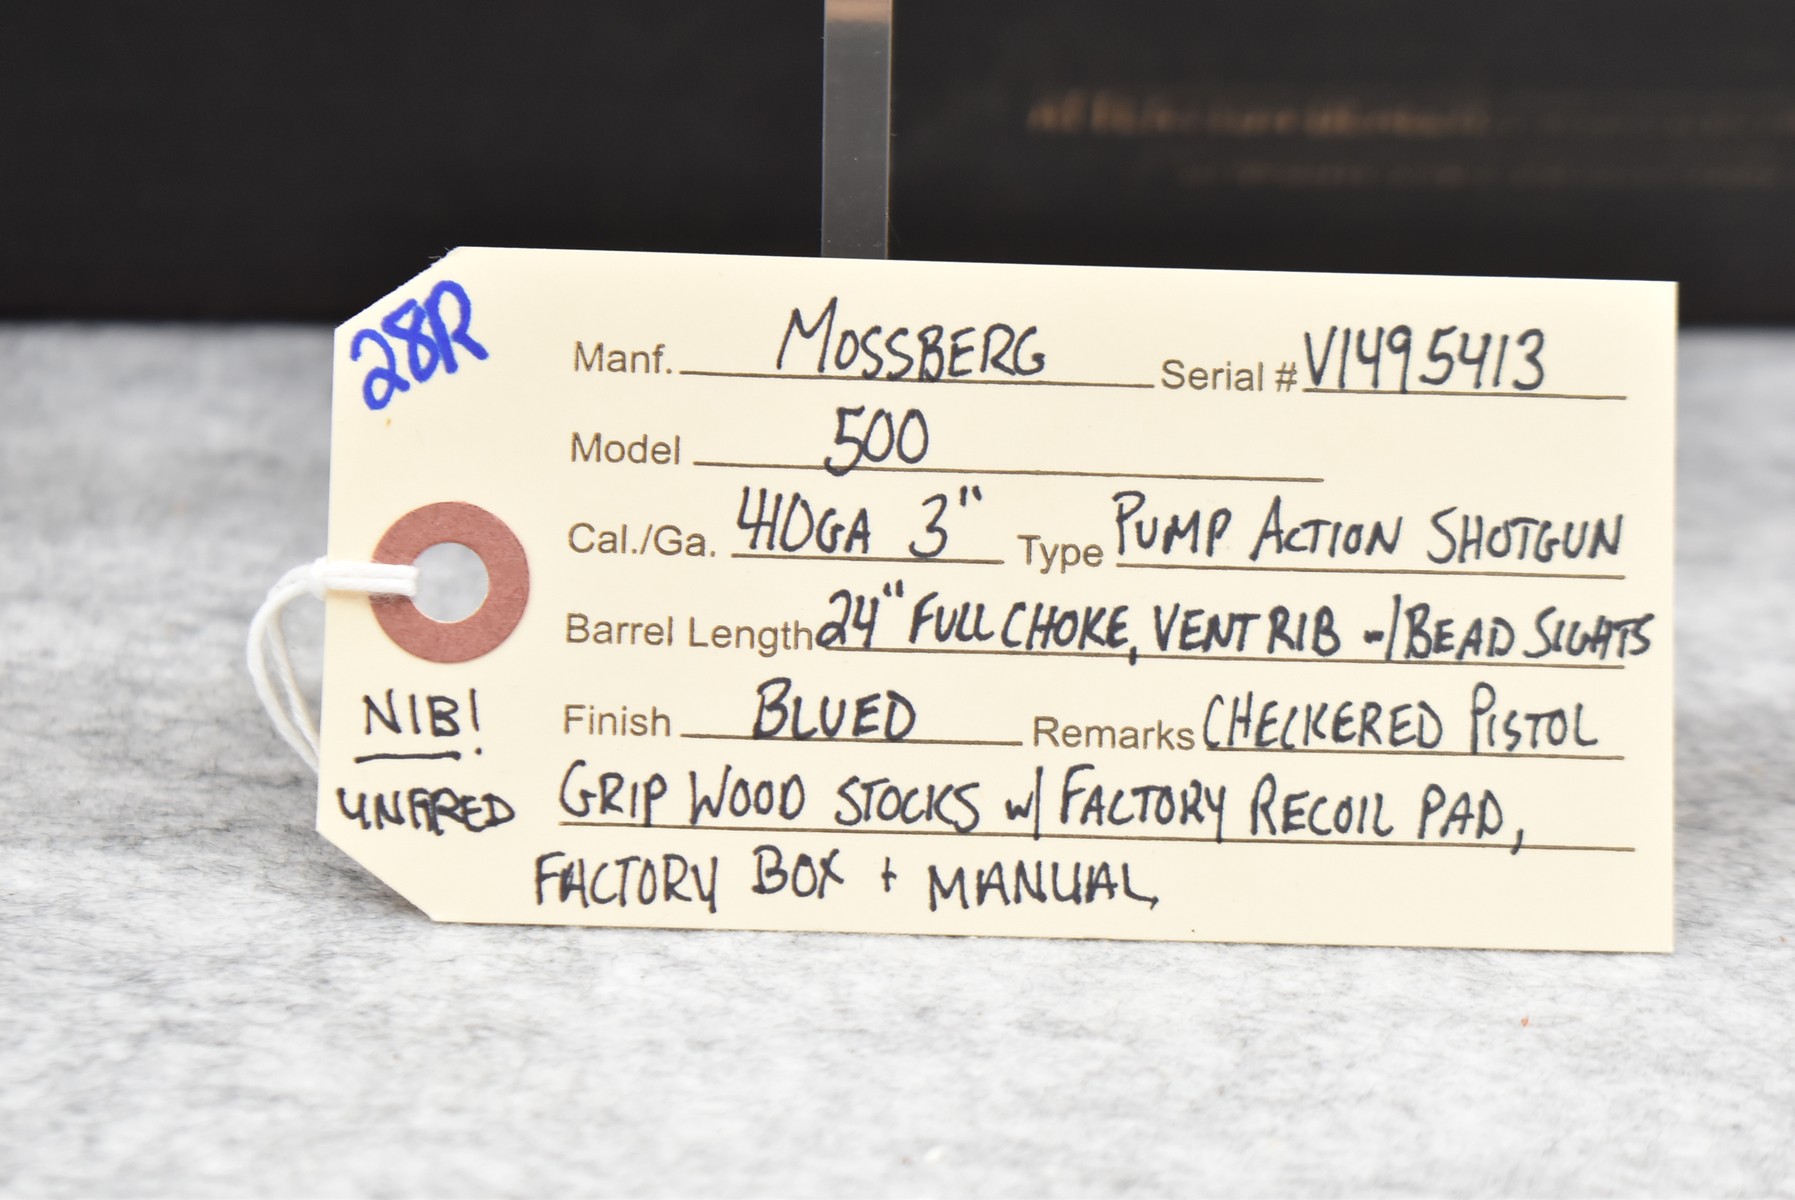 28R
Manf. MOSSBERG Serial # V1495413
Model 500
Cal./Ga. 410GA 3" Type PUMP ACTION SHOTGUN
Barrel Length 24" FULL CHOKE, VENT RIB w/ BEAD SIGHTS
NIB! Finish BLUED Remarks CHECKERED PISTOL
UNFIRED GRIP WOOD STOCKS w/ FACTORY RECOIL PAD,
FACTORY BOX + MANUAL,